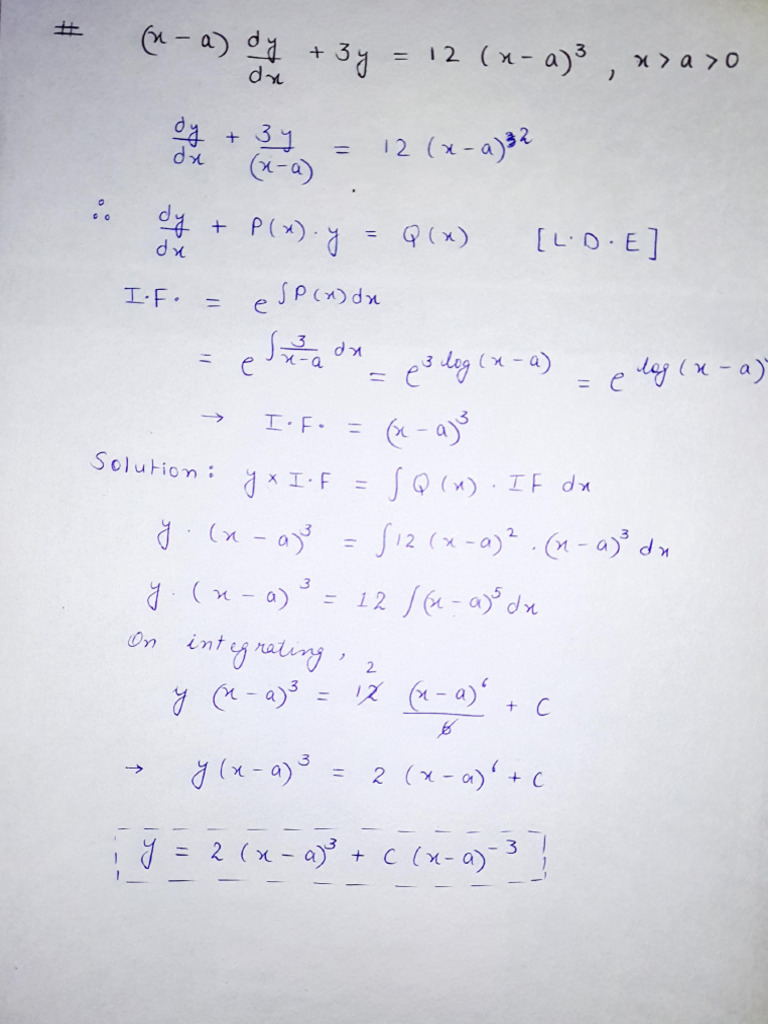 # (x - a) dy/dx + 3y = 12 (x - a)³ , x > a > 0
dy/dx + 3y/(x-a) = 12 (x-a)²
∴ dy/dx + P(x)·y = Q(x) [L·D·E]
I·F· = e^∫P(x)dx
= e^∫3/(x-a) dx = e^3 log(x-a) = e^log(x-a)
→ I·F· = (x-a)³
Solution: y × I·F = ∫Q(x) · IF dx
y · (x-a)³ = ∫12 (x-a)² · (x-a)³ dx
y · (x-a)³ = 12 ∫(x-a)⁵ dx
On integrating,
y (x-a)³ = 12 2 (x-a)⁶/6 + C
→ y(x-a)³ = 2 (x-a)⁶ + C
y = 2 (x-a)³ + C (x-a)⁻³